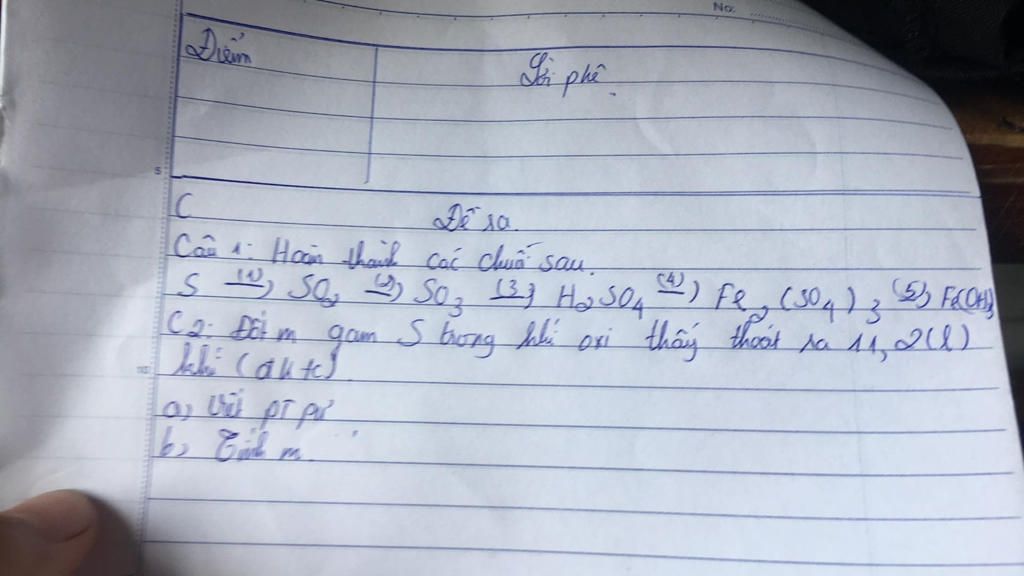 No.
Điểm
Lời phê.
5
C
Đề ra.
Câu 1: Hoàn thành các chuỗi sau.
S (1)→ SO2 (2)→ SO3 (3)→ H2SO4 (4)→ Fe2(SO4)3 (5)→ Fe(OH)3
C2: Đốt m gam S trong khí oxi thấy thoát ra 11,2(l)
10
khí (đktc)
a) Viết PT pư
b) Tính m.